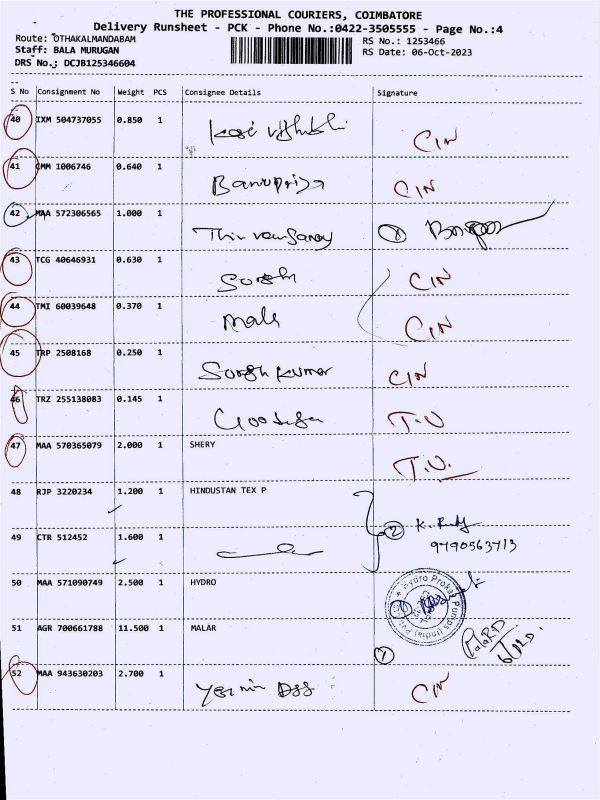 THE PROFESSIONAL COURIERS, COIMBATORE
Delivery Runsheet - PCK - Phone No.:0422-3505555 - Page No.:4
Route: OTHAKALMANDABAM RS No.: 1253466
Staff: BALA MURUGAN RS Date: 06-Oct-2023
DRS No.: DCJB125346604
S No Consignment No Weight PCS Consignee Details Signature
40 IXM 504737055 0.850 1 CIN
41 CMM 1006746 0.640 1 Banupriya CIN
42 MAA 572306565 1.000 1
43 TCG 40646931 0.630 1 CIN
44 TMI 60039648 0.370 1 Mala CIN
45 TRP 2508168 0.250 1 Kumar CIN
46 TRZ 255138083 0.145 1 T.U
47 MAA 570365079 2.000 1 SHERY T.U.
48 RJP 3220234 1.200 1 HINDUSTAN TEX P
2 K.
9790563713
49 CTR 512452 1.600 1
50 MAA 571090749 2.500 1 HYDRO
Hydro Prokav Pumps (India)
51 AGR 700661788 11.500 1 MALAR
52 MAA 943630203 2.700 1 CIN